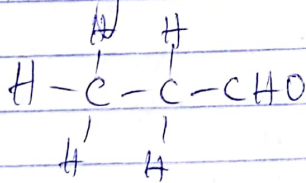 H H
H - C - C - CHO
H H